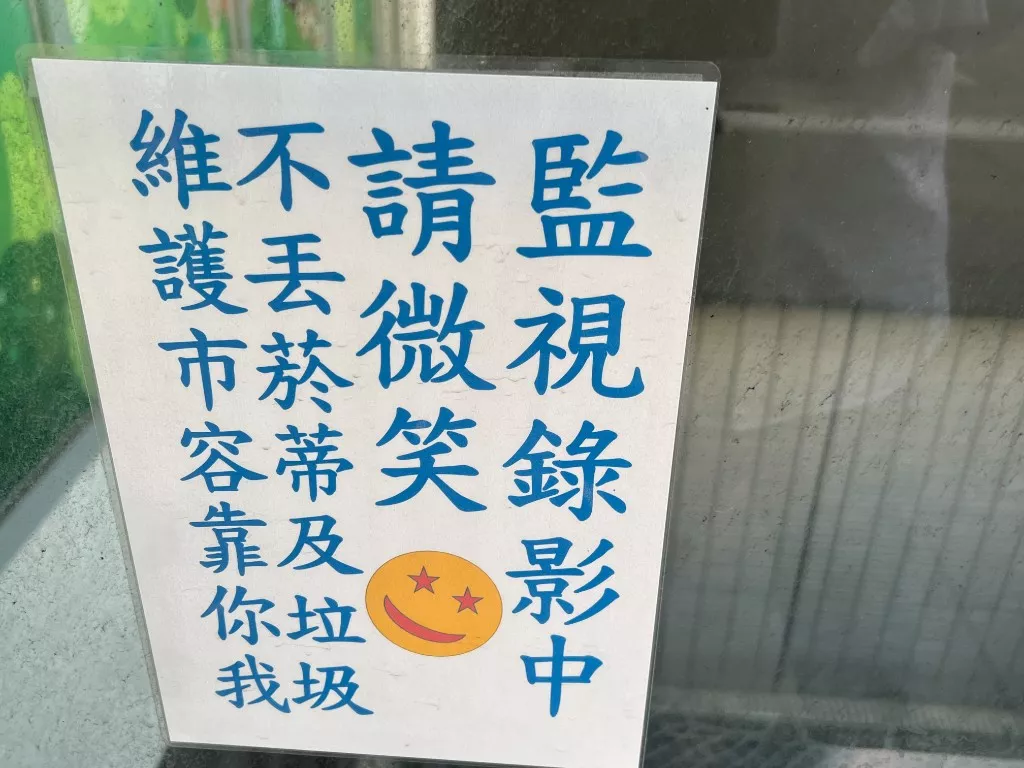 監視錄影中
請微笑
不丟菸蒂及垃圾
維護市容靠你我